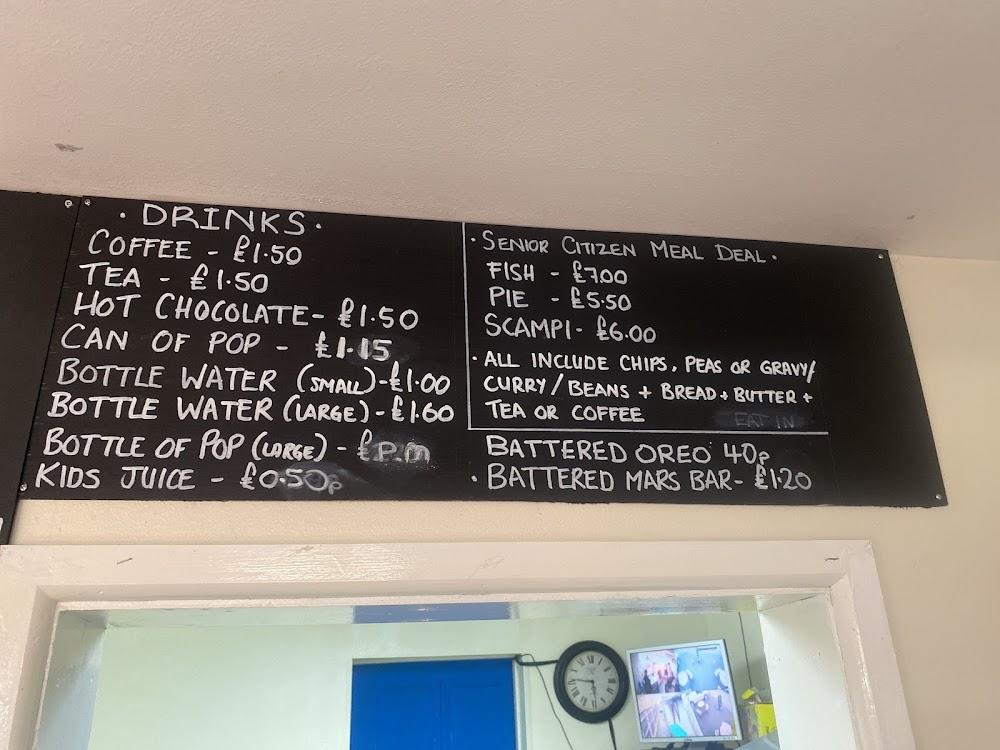 · DRINKS ·
COFFEE - £1.50
TEA - £1.50
HOT CHOCOLATE - £1.50
CAN OF POP - £1.15
BOTTLE WATER (SMALL) - £1.00
BOTTLE WATER (LARGE) - £1.60
BOTTLE OF POP (LARGE) - £P.M
KIDS JUICE - £0.50p
· SENIOR CITIZEN MEAL DEAL ·
FISH - £7.00
PIE - £5.50
SCAMPI - £6.00
· ALL INCLUDE CHIPS, PEAS OR GRAVY/
CURRY/BEANS + BREAD + BUTTER +
TEA OR COFFEE
EAT IN
BATTERED OREO 40p
· BATTERED MARS BAR - £1.20